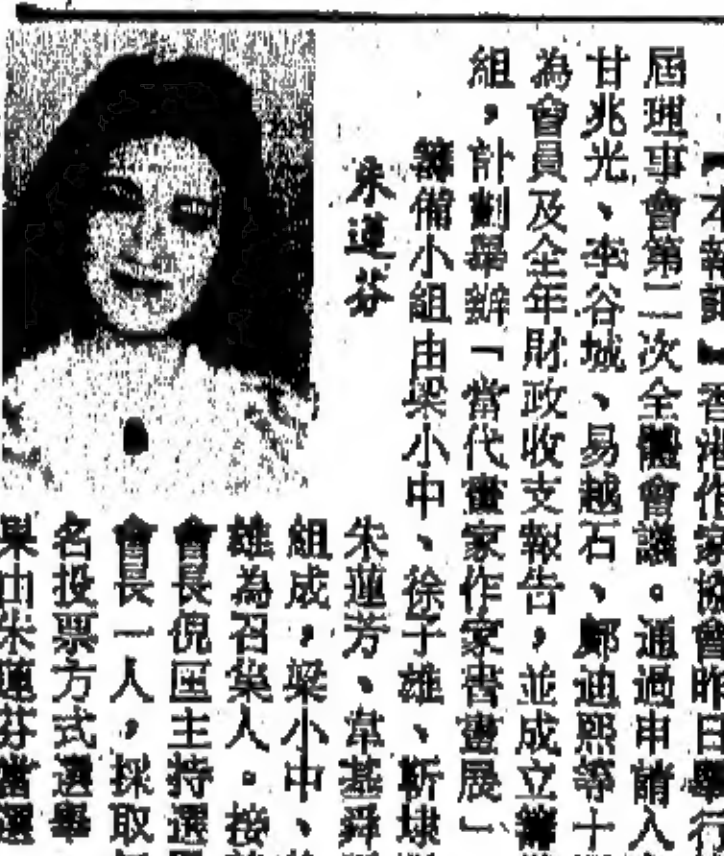 【本報訊】香港作家協會昨日舉行
屆理事會第二次全體會議。通過申請入
甘兆光、李谷城、易越石、鄺迪熙等十
為會員及全年財政收支報告，並成立籌
組，計劃舉辦「當代畫家作家書畫展」、
籌備小組由梁小中、徐子雄、靳埭
朱蓮芬
朱蓮芳、韋基舜
組成，梁小中、
雄為召集人。接
會長倪匡主持選
會長一人，採取
名投票方式選舉
果由朱蓮芬當選